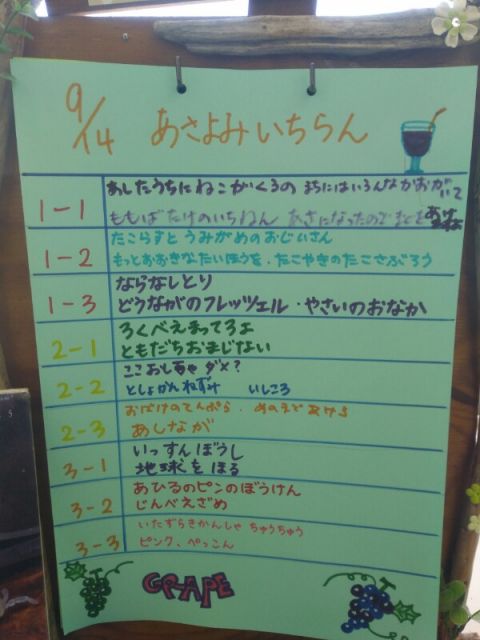 9/14 あさよみいちらん
1-1 あしたうちにねこがくるの まちにはいろんなかおがいて
ももばたけのいちねん あさになったのでまどをあけますよ
1-2 たこらすと うみがめのおじいさん
もっとおおきなたいほうを・たこやきのたこさぶろう
1-3 ならなしとり
どうながのプレッツェル・やさいのおなか
2-1 ろくべえまってろよ
ともだちおまじない
2-2 ここおしちゃダメ?
としょかんねずみ いしころ
2-3 おばけのてんぷら・めのまどあけろ
あしなが
3-1 いっすんぼうし
地球をほる
3-2 あひるのピンのぼうけん
じんべえざめ
3-3 いたずらきかんしゃ ちゅうちゅう
ピンク、ぺっこん
GRAPE